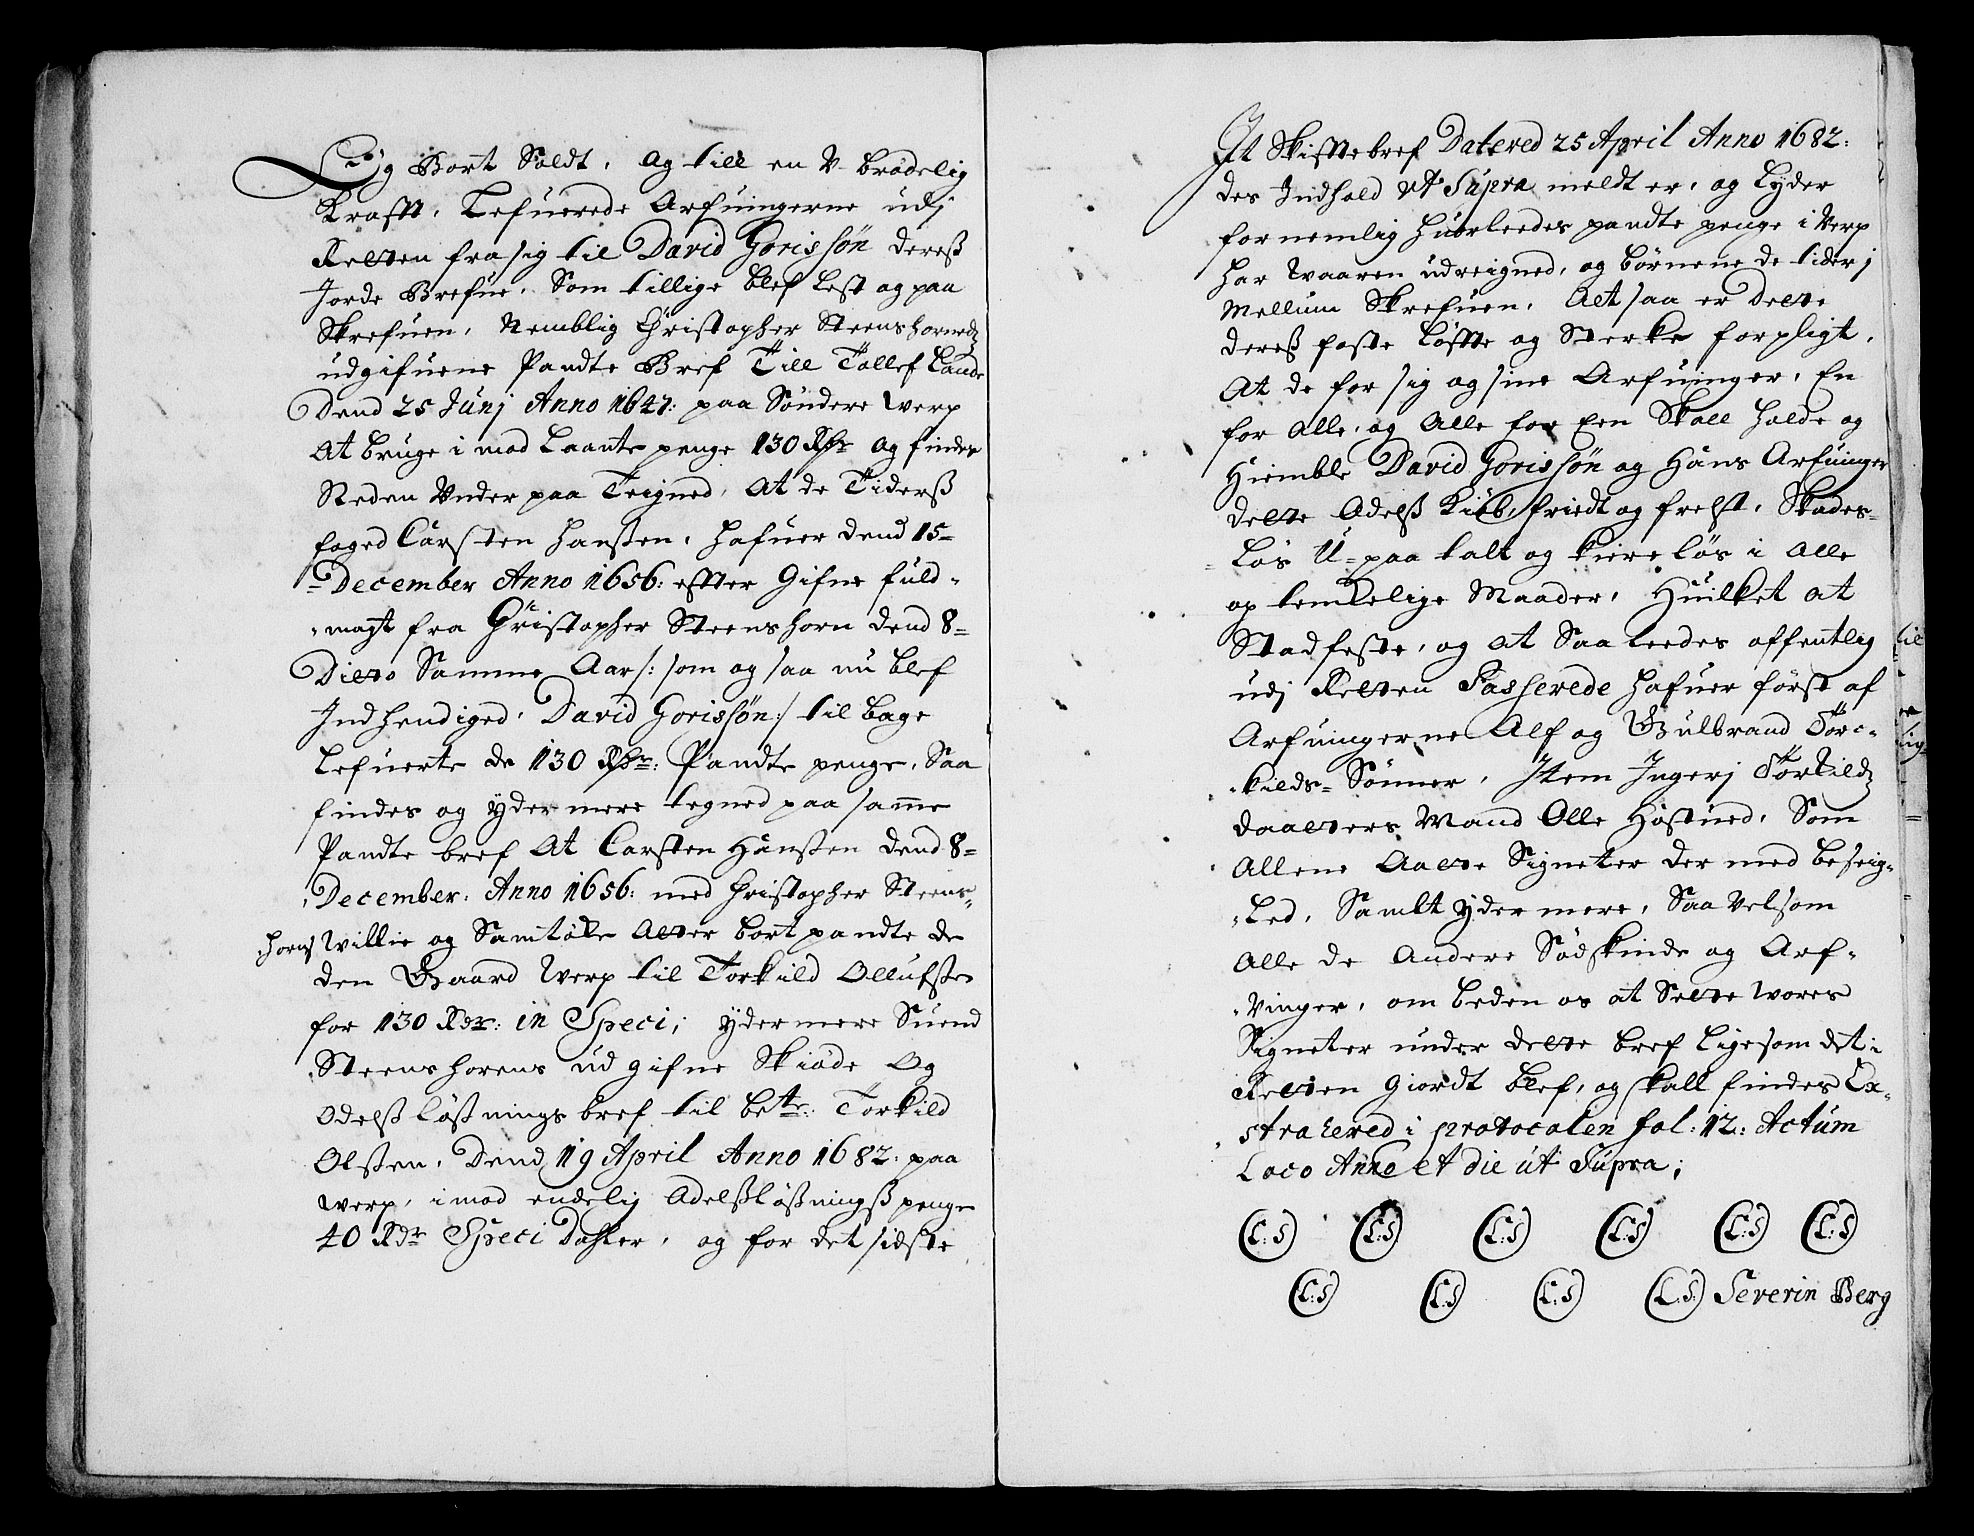 Lig Bort Soldt, og till en V-brödelig
Krafft, Lefuerede Arfuingerne udj
Retten fra sig til David Gorissön dereß
Jorde Brefue, Som tillige blef Lest og paa
Skrefuen, Nemblig Christopher Steenshorneds
udgifuene Pandte Bref Till Tollef Lande
Dend 25 Junj Anno 1647: paa Söndere Werp
At bruge i mod Laante penge 130 Rdr og findes
Steden Vnder paa Teigned, At de Tiderß
foged Carsten Hanßen, hafuer dend 15-
-December Anno 1656: effter Gifne fuld-
-magt fra Christopher Steenshorn dend 8-
Dieto Samme Aar/: som og saa nu blef
Indhendiged, David Gorissön:/ til bage
Lefuerte de 130 Rdr: Pandte penge, Saa
findes og ydermere tegned paa samme
Pandte bref At Carsten Hanßen dend 8-
December, Anno 1656: med Christopher Steens-
horns Willie og Samtöcke Atter bort pandte de
den Gaard Werp til Torkild Ollufsen
for 130 Rdr: in Speci; ydermere Suend
Steenshorens ud gifne Skiöde Og
Odelß Lößnings bref til bete: Torkild
Olsten, Dend 19 April Anno 1682: paa
Werp, i mod endelig Odelßlößningß penge
40 Rdr Speci Daller, og for det sidste
It Skiftebref Datered 25 April Anno 1682:
des Indhold Vt Supra meldt er, og Lyder
fornemlig huorleedes pandte penge i Verp
har Waaren udreigned, og börnene de tider j
Mellum Skrefuen, Alt saa er dette
dereß faste Löffte og Sterke forpligt,
At de for sig og sine Arfuinger, En
for Alle, og Alle for Een Skall holde og
Hiemble David Gorissön og Hans Arfuinger
dette Odelß Kiöb, friedt og frelst, Skades-
-Lös U-paa talt og kiere lös i Alle
op tenkelige Maader, Huilket at
Stadfeste, og at Saaleedes offentlig
udj Retten Passerede hafuer först af
Arfuingerne Alf og Gulbrand Torc-
-kilds-Sönner, Item Ingerj Torkilds
daatters Mand Olle Höstued, Som
Allene Aatte Signeter der med beseig-
-Led, Samlt ydermere, Saa Velsom
Alle de Andere Södskinde og Arf-
-Vinger, om beden os at Sette Wores
Signeter under dette bref Ligesom det i
Retten Giordt blef, og skall findes Ex-
-strahered i protocolen fol: 12: Actum
Loco Anno et die ut Supra;
L:S L:S L:S L:S L:S L:S
L:S L:S L:S L:S Severin Berg